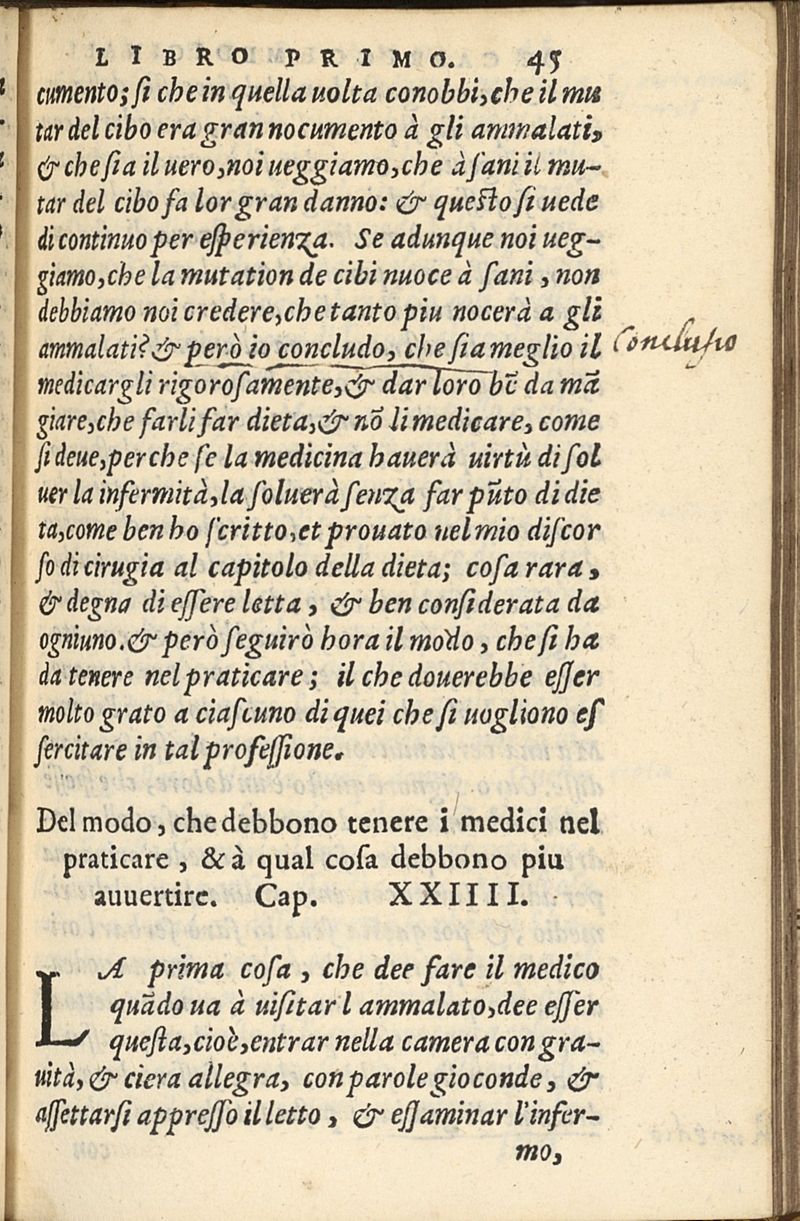 LIBRO PRIMO. 45
cumento; ſi che in quella uolta conobbi, che il mu
tar del cibo era gran nocumento à gli ammalati,
& che ſia il uero, noi ueggiamo, che à ſani il mu-
tar del cibo fa lor gran danno: & queſto ſi uede
di continuo per eſperienza. Se adunque noi ueg-
giamo, che la mutation de cibi nuoce à ſani, non
debbiamo noi credere, che tanto piu nocerà a gli
ammalati? & però io concludo, che ſia meglio il
Conclusio
medicargli rigoroſamente, & dar loro bẽ da mã
giare, che farli far dieta, & nõ li medicare, come
ſi deue, perche ſe la medicina hauerà uirtù di ſol
uer la infermità, la ſoluerà ſenza far pũto di die
ta, come ben ho ſcritto, et prouato nel mio diſcor
ſo di cirugia al capitolo della dieta; coſa rara,
& degna di eſſere letta, & ben conſiderata da
ogniuno. & però ſeguirò hora il modo, che ſi ha
da tenere nel praticare; il che douerebbe eſſer
molto grato a ciaſcuno di quei che ſi uogliono eſ
ſercitare in tal profeſſione.
Del modo, che debbono tenere i medici nel
praticare, & à qual coſa debbono piu
auuertire. Cap. XXIIII.
LA prima coſa, che dee fare il medico
quãdo ua à uiſitar l ammalato, dee eſſer
queſta, cioè, entrar nella camera con gra-
uità, & ciera allegra, con parole gioconde, &
aſſettarſi appreſſo il letto, & eſſaminar l'infer-
mo,